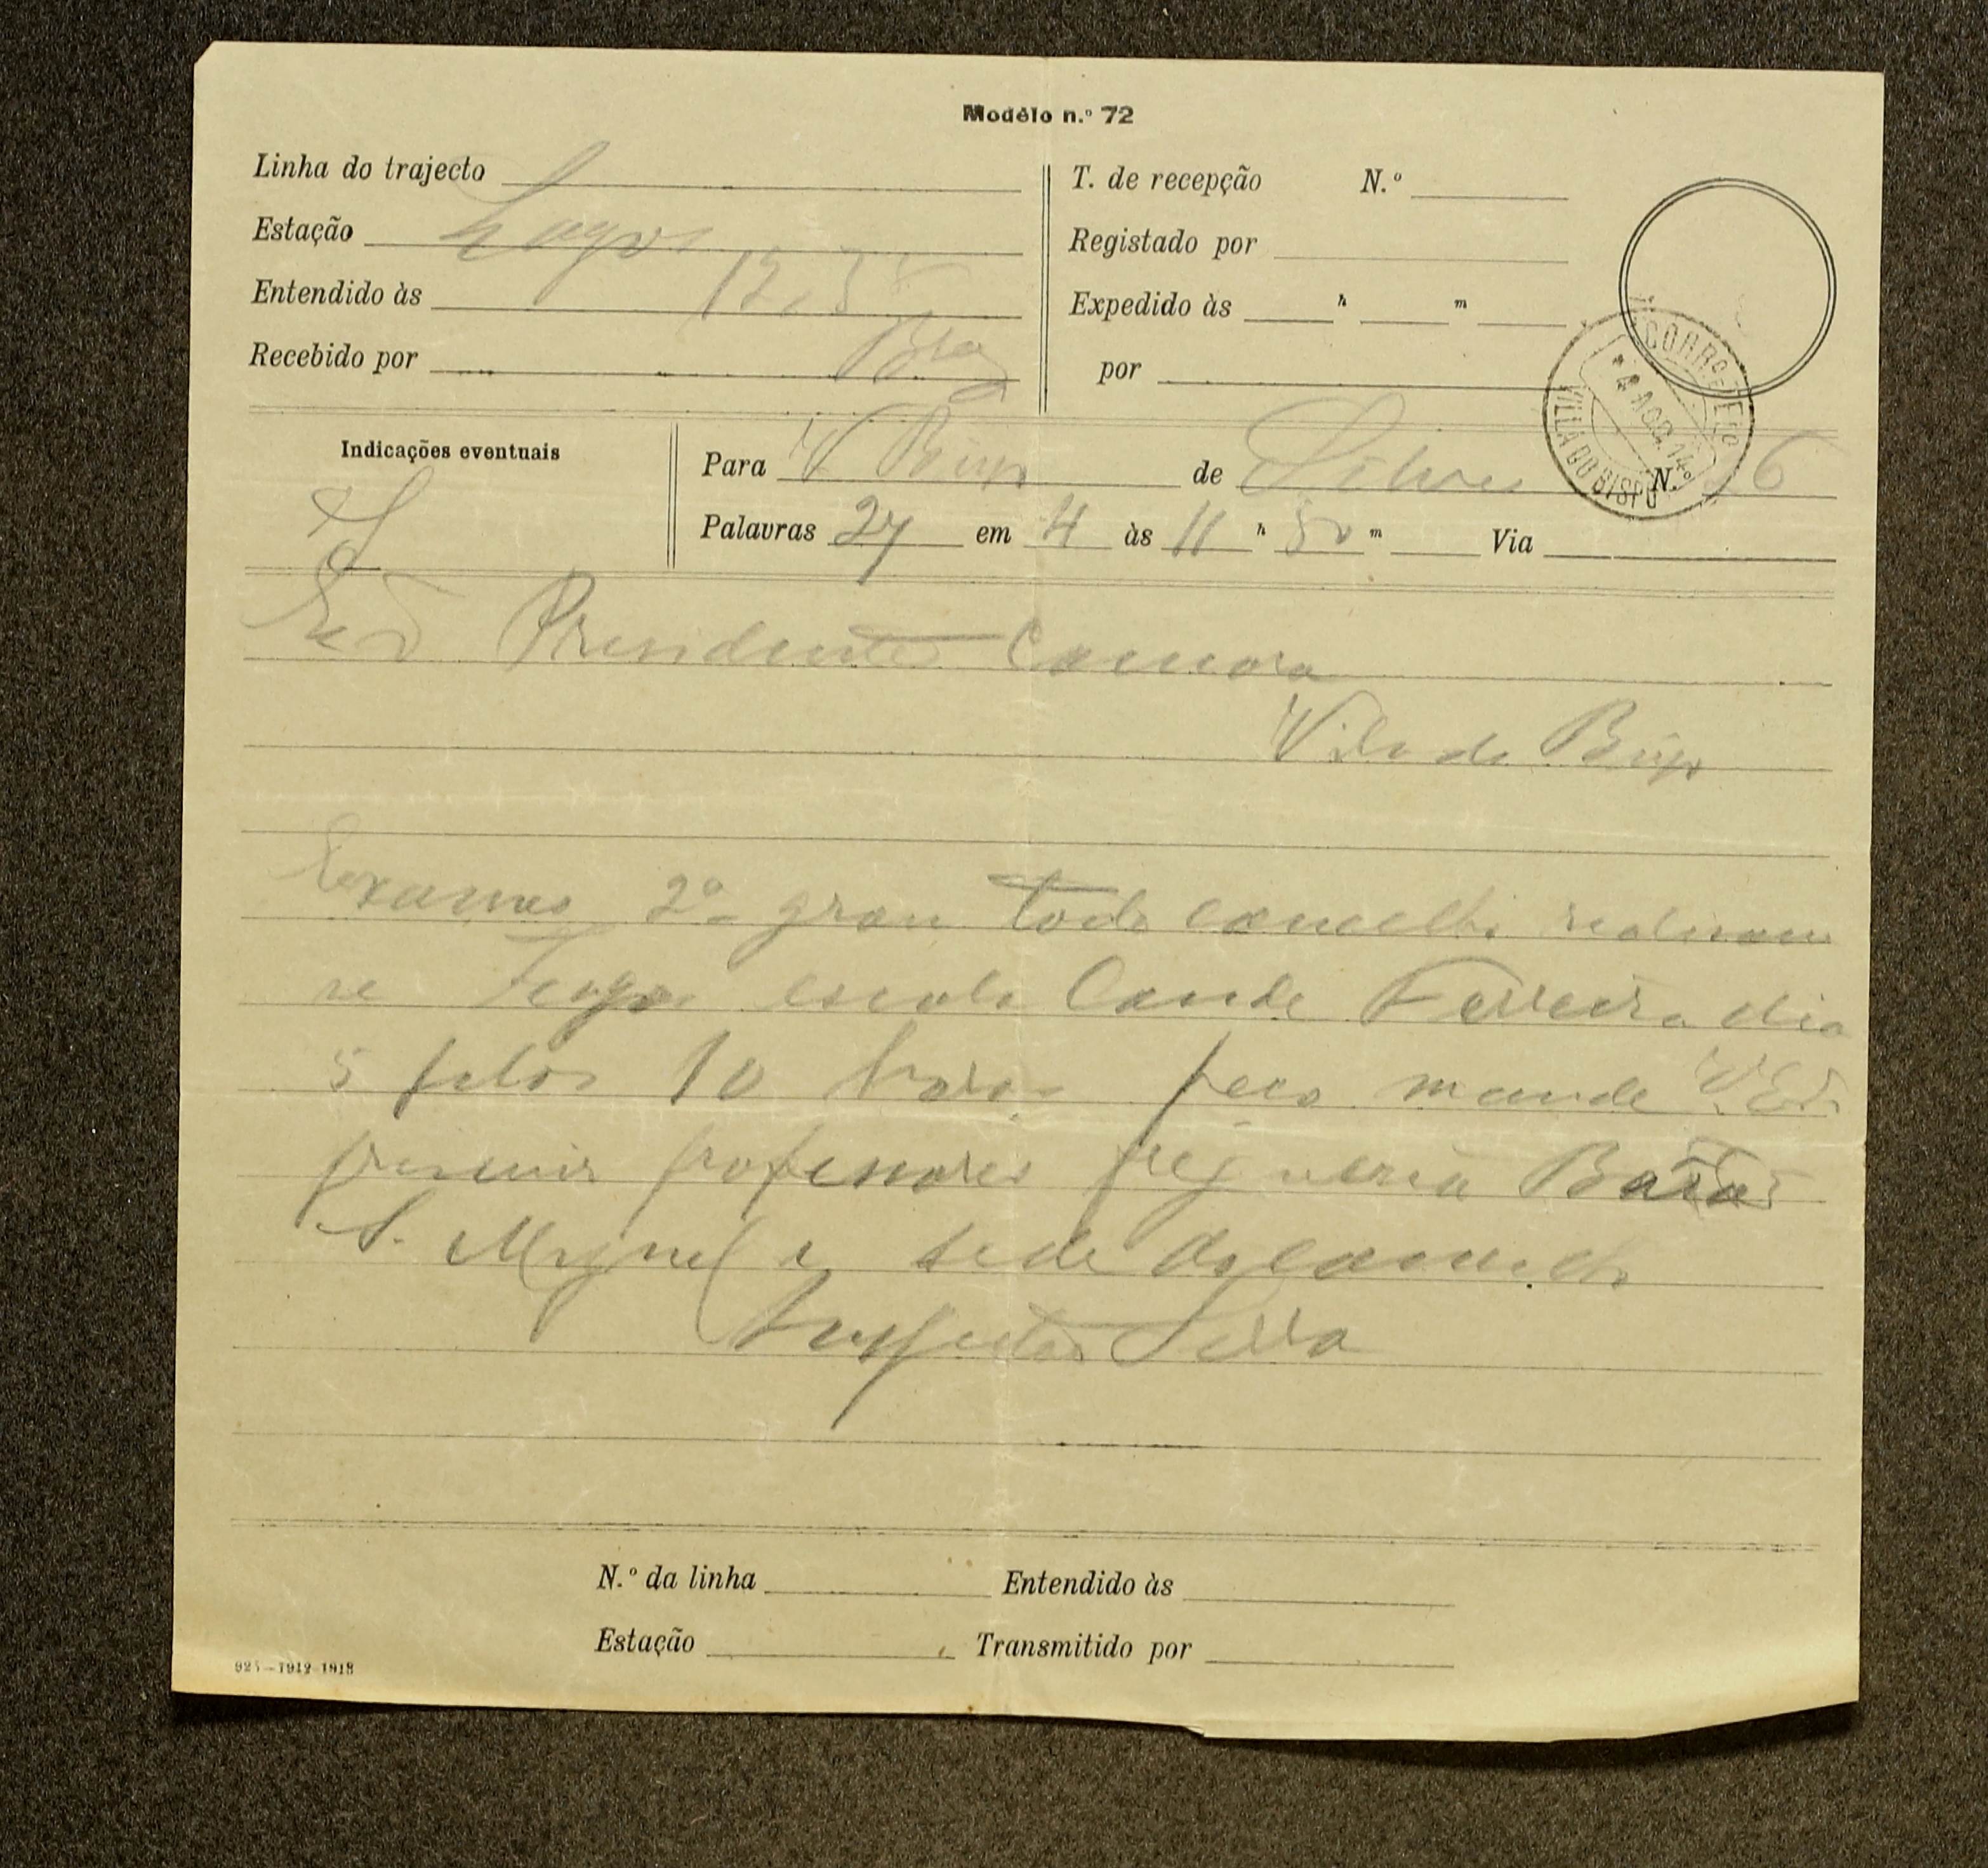 Modêlo n.º 72
Linha do trajecto
Estação Lagos
Entendido às 12,35
Recebido por Braz
T. de recepção N.º
Registado por
Expedido às h m
por
CORREIO E TELº
4 AGO. 14
VILA DO BISPO
Indicações eventuais
S
Para V Bispo de Silves N.º 26
Palavras 27 em 4 às 11 h 50 m Via
Presidente Camara
Vila do Bispo
Exames 2º grau todo concelho realisam
se escola Conde Ferreira dia
5 pelas 10 horas peço mande V. Exª
prevenir professores freguesia
S. Miguel e sede do concelho
Inspector Serra
N.º da linha Entendido às
Estação Transmitido por